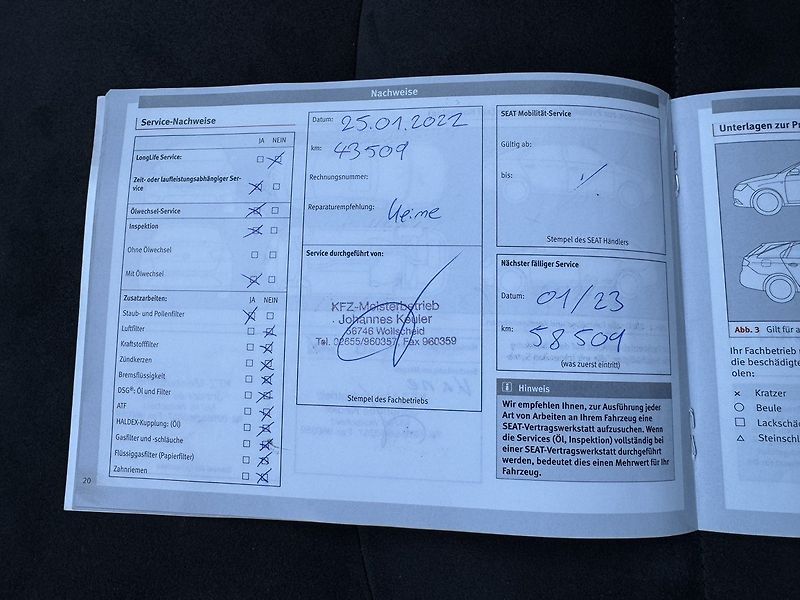 Nachweise
Service-Nachweise
JA NEIN
LongLife Service:
Zeit- oder laufleistungsabhängiger Ser-
vice
Ölwechsel-Service
Inspektion
Ohne Ölwechsel
Mit Ölwechsel
Zusatzarbeiten: JA NEIN
Staub- und Pollenfilter
Luftfilter
Kraftstofffilter
Zündkerzen
Bremsflüssigkeit
DSG®: Öl und Filter
ATF
HALDEX-Kupplung: (Öl)
Gasfilter und -schläuche
Flüssiggasfilter (Papierfilter)
Zahnriemen
20
Datum: 25.01.2022
km: 43509
Rechnungsnummer:
Reparaturempfehlung: Keine
Service durchgeführt von:
KFZ-Meisterbetrieb
Johannes Keuler
56746 Wollscheid
Tel. 02655/960357, Fax 960359
Stempel des Fachbetriebs
SEAT Mobilität-Service
Gültig ab:
bis:
Stempel des SEAT Händlers
Nächster fälliger Service
Datum: 01/23
km: 58509
(was zuerst eintritt)
Hinweis
Wir empfehlen Ihnen, zur Ausführung jeder
Art von Arbeiten an Ihrem Fahrzeug eine
SEAT-Vertragswerkstatt aufzusuchen. Wenn
die Services (Öl, Inspektion) vollständig bei
einer SEAT-Vertragswerkstatt durchgeführt
werden, bedeutet dies einen Mehrwert für Ihr
Fahrzeug.
Unterlagen zur Pr
Abb. 3 Gilt für a
Ihr Fachbetrieb
die beschädigte
olen:
Kratzer
Beule
Lackschä
Steinschl